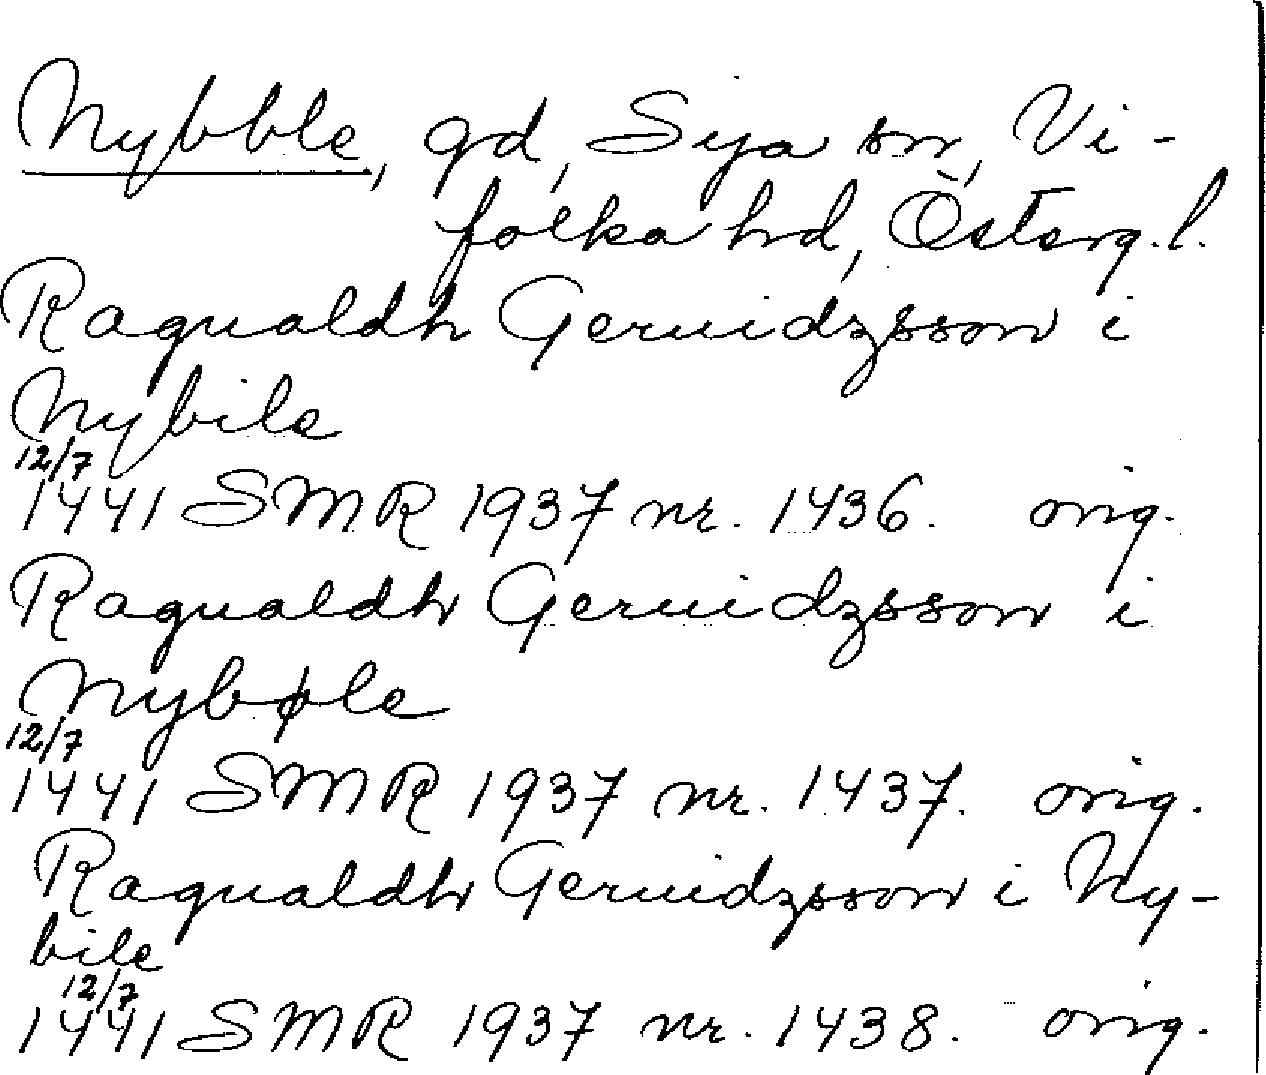 Nybble, gd, Sya sn, Vi-
folka hd, Österg.l.
Ragualdh Geruidzsson i
Nybile
12/7
1441 SMR 1937 nr. 1436. orig.
Ragualdh Geruidzsson i
Nybøle
12/7
1441 SMR 1937 nr. 1437. orig.
Ragualdh Geruidzsson i Ny-
bile
12/7
1441 SMR 1937 nr. 1438. orig.